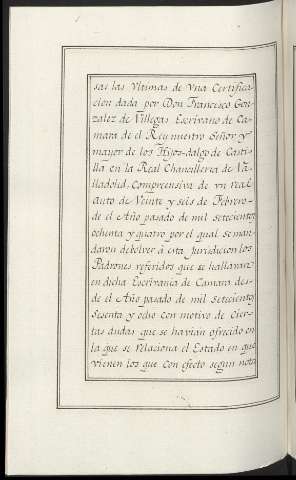 sas las Vltimas de Vna Certifica-
cion dada por Don Francisco Gon-
zalez de Villegas Escrivano de Ca-
mara de el Rey nuestro Señor, y
mayor de los Hijos-dalgo de Casti-
lla en la Real Chancilleria de Va-
lladolid, Comprensiva de vn real
auto de Veinte y seis de Febrero
de el Año pasado de mil setecientos
ochenta y quatro por el qual se man-
daron debolver á esta Jurisdicion los
Padrones referidos que se hallaran
en dicha Escrivania de Camara des-
de el Año pasado de mil setecientos
Sesenta y ocho con motivo de Cier-
tas dudas que se havian ofrecido en
la que se relaciona el Estado en que
vienen los que con efecto segun nota